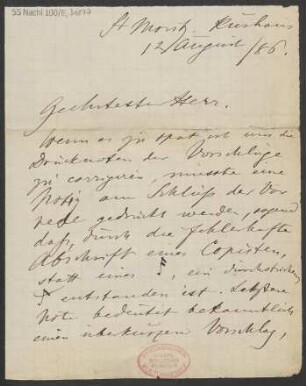 55 Nachl 100/B,
St Moritz. Kurhaus
12 August /86.
Geehrtester Herr.
Wenn es zu spät ist um die
Drucknoten der Vorschläge
zu corrigiren, müsste eine
Notiz am Schluss der Vor
rede gedruckt werden, sagend
dass, durch die fehlerhafte
Abschrift eines Copisten,
statt eines , ein durchstrichen
entstanden ist. Letztere
Note bedeutet bekanntlich
einen überkurzen Vorschlag,